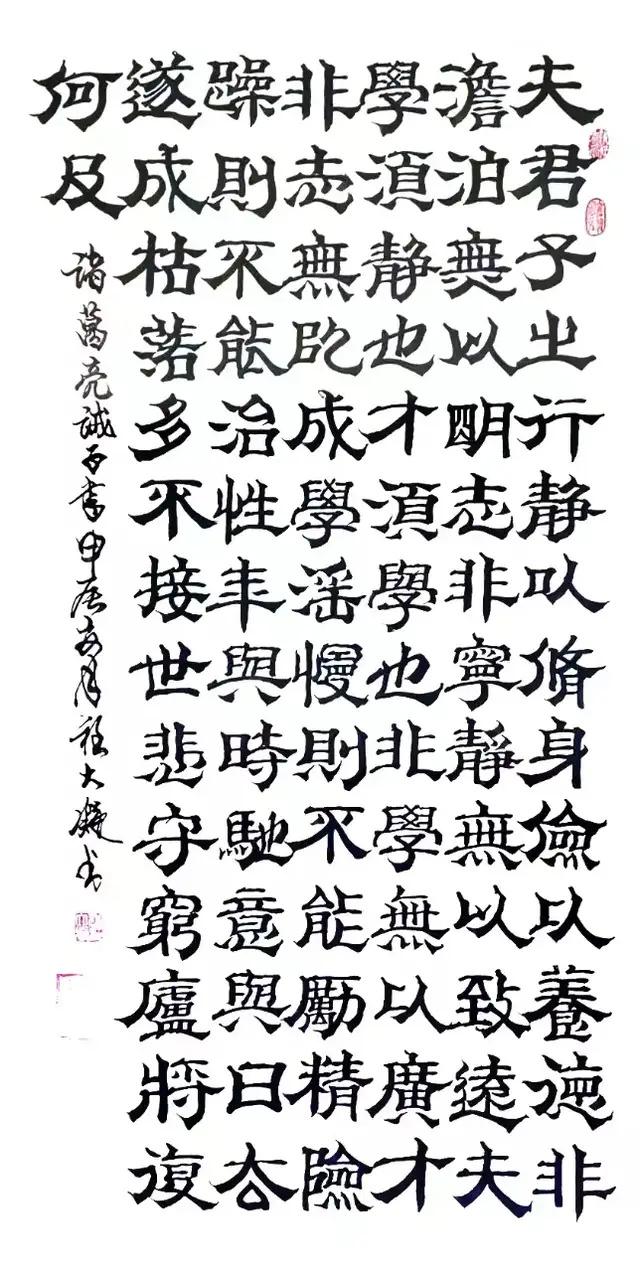 夫君子之行静以脩身儉以養德非
澹泊無以明志非寧靜無以致遠夫
學須静也才須學也非學無以廣才
非志無以成學滛慢則不能勵精險
躁則不能治性年與時馳意與日去
遂成枯落多不接世悲守窮廬將復
何及
諸葛亮誡子書甲辰亥月程大書